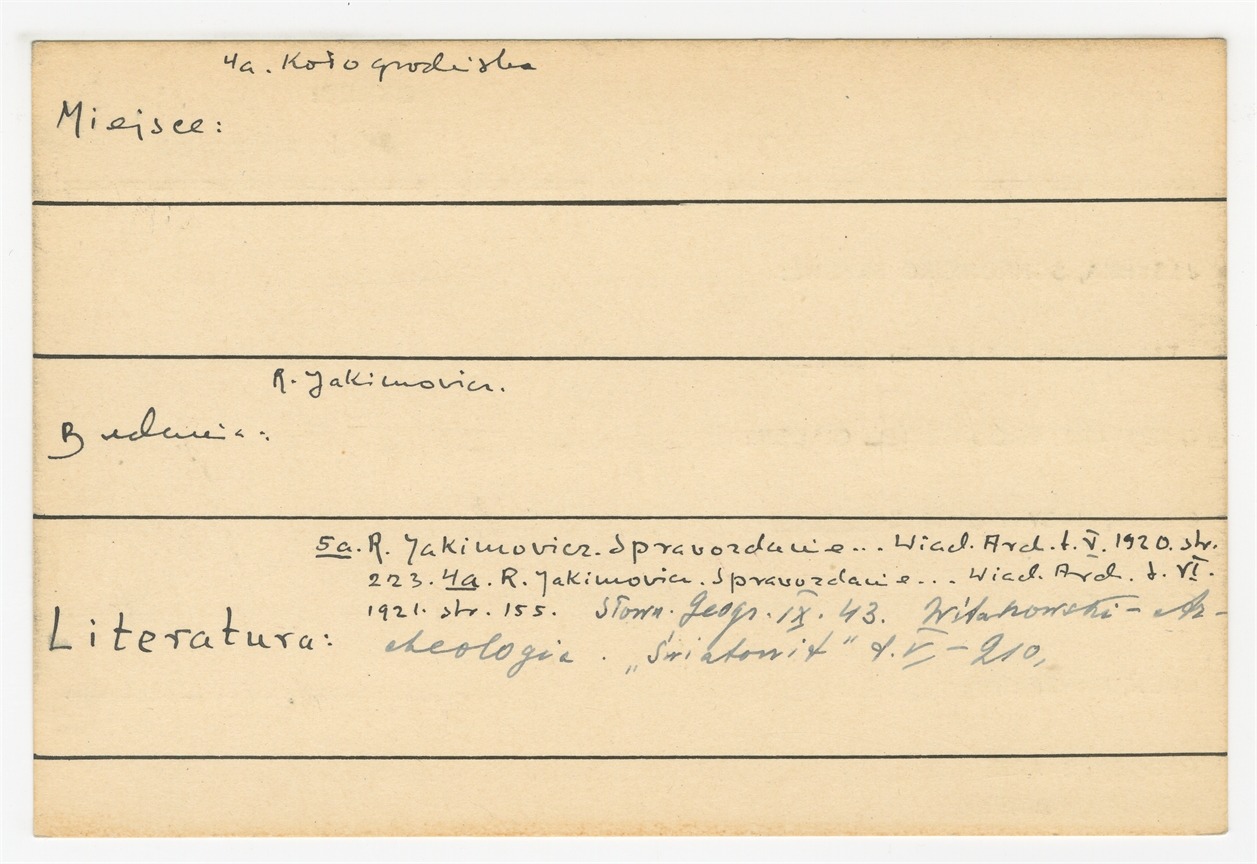 4a. Koło grodziska
Miejsce:
R. Jakimowicz.
Badania:
5a. R. Jakimowicz. Sprawozdanie... Wiad. Arch. t. V. 1920. str.
223. 4a. R. Jakimowicz. Sprawozdanie... Wiad. Arch. t. VI.
1921. str. 155. Słown. Geogr. IX. 43. Witanowski – Ar-
Literatura: cheologia. „Światowit" t. V – 210,